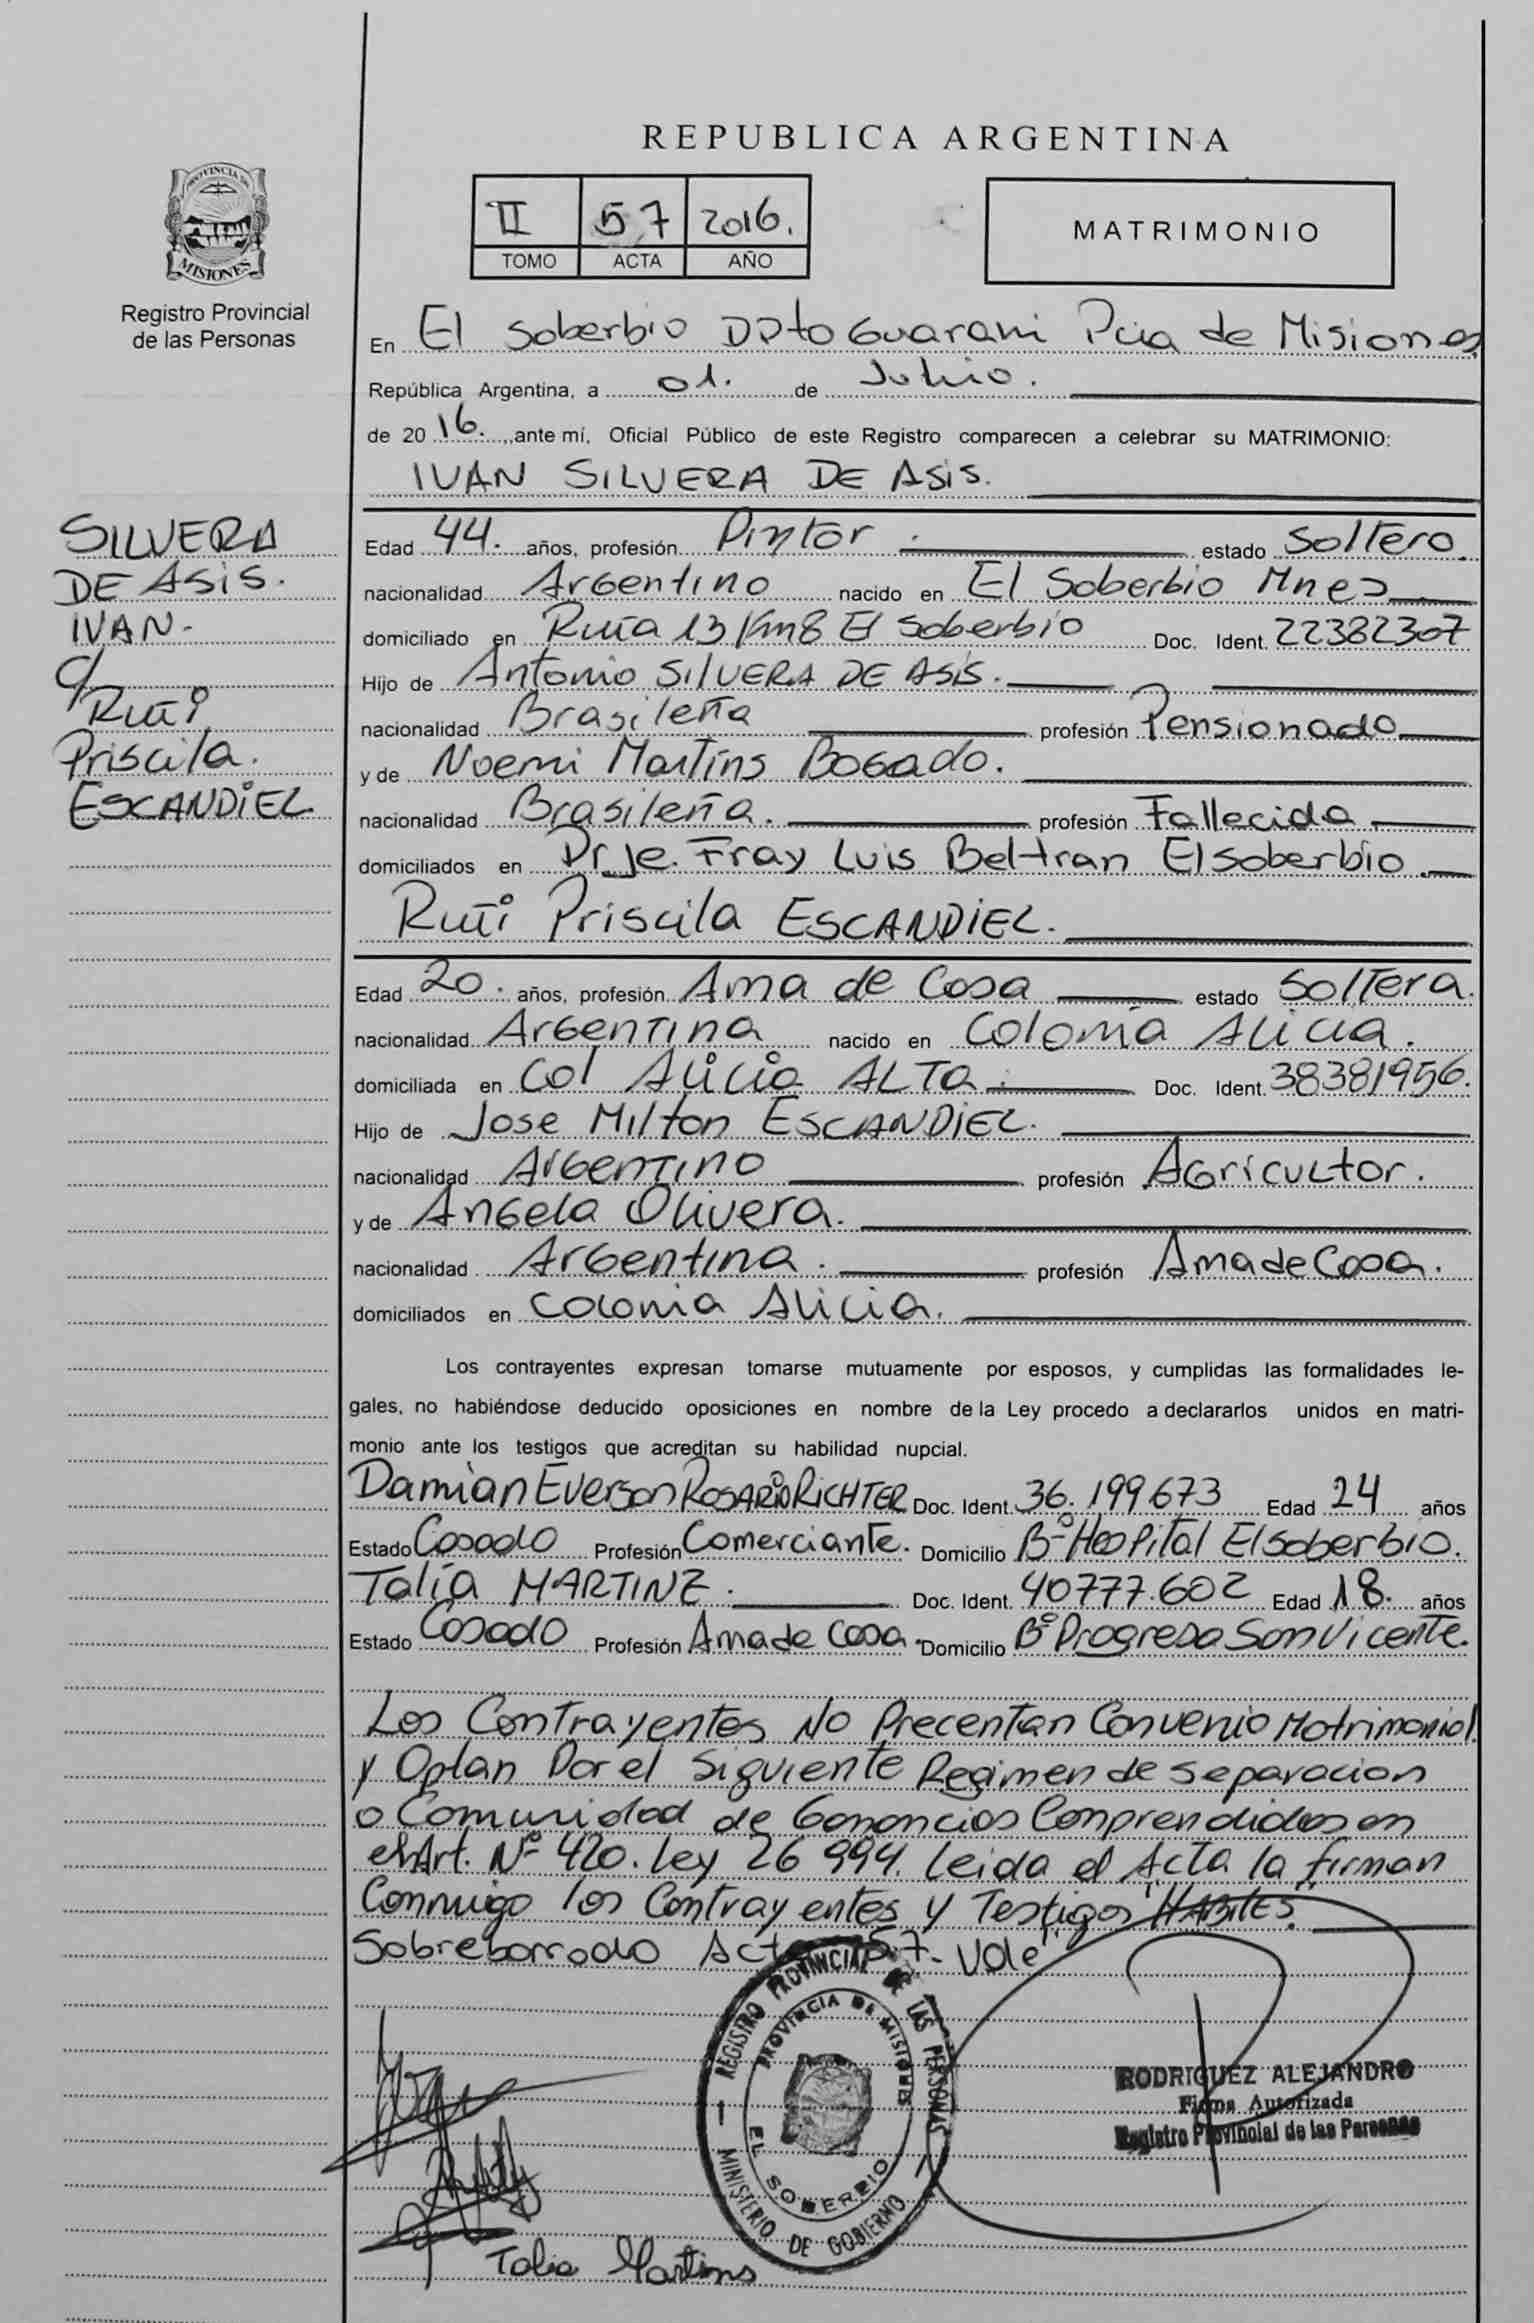 REPUBLICA ARGENTINA
II 57 2016.
TOMO ACTA AÑO
MATRIMONIO
PROVINCIA DE
MISIONES
Registro Provincial
de las Personas
En El Soberbio DPto Guarani Pcia de Misiones
República Argentina, a 01. de Julio.
de 20 16. ,ante mí, Oficial Público de este Registro comparecen a celebrar su MATRIMONIO:
IVAN SILVERA DE ASIS.
SILVERA
DE ASIS.
IVAN-
c/
Ruti
Priscila.
ESCANDIEL
Edad 44. años, profesión Pintor. estado Soltero.
nacionalidad Argentino nacido en El Soberbio Mnes
domiciliado en Ruta 13 Km8 El Soberbio Doc. Ident. 22382307
Hijo de Antonio SILVERA DE ASIS.
nacionalidad Brasileña profesión Pensionado
y de Noemi Martins Bogado.
nacionalidad Brasileña. profesión Fallecida
domiciliados en Fray Luis Beltran El Soberbio
Ruti Priscila ESCANDIEL.
Edad 20. años, profesión Ama de Casa estado Soltera.
nacionalidad Argentina nacido en Colonia Alicia.
domiciliada en Col Alicia ALTA. Doc. Ident. 38381956.
Hijo de Jose Milton ESCANDIEL.
nacionalidad Argentino profesión Agricultor.
y de Angela Olivera.
nacionalidad Argentina. profesión Ama de Casa.
domiciliados en Colonia Alicia.
Los contrayentes expresan tomarse mutuamente por esposos, y cumplidas las formalidades le-
gales, no habiéndose deducido oposiciones en nombre de la Ley procedo a declararlos unidos en matri-
monio ante los testigos que acreditan su habilidad nupcial.
Damian Everson ROSARIO RICHTER Doc. Ident. 36.199.673 Edad 24 años
Estado Casado Profesión Comerciante. Domicilio Bº Hospital El Soberbio.
Talía MARTINZ. Doc. Ident. 40777.602 Edad 18. años
Estado Casado Profesión Ama de Casa. Domicilio Bº Progreso San Vicente.
Los Contrayentes No Precentan Convenio Matrimonial.
y Optan Por el Siguiente Regimen de Separacion
o Comunidad de Ganancias Conprendidas en
el Art. Nº 420. Ley 26 994. Leida el Acta la firman
Conmigo los Contrayentes y Testigos HABILES.
Sobreborrado Acta 57- Vale
REGISTRO PROVINCIAL DE LAS PERSONAS
PROVINCIA DE MISIONES
EL SOBERBIO
MINISTERIO DE GOBIERNO
RODRIGUEZ ALEJANDRO
Firma Autorizada
Registro Provincial de las Personas
Talia Martins